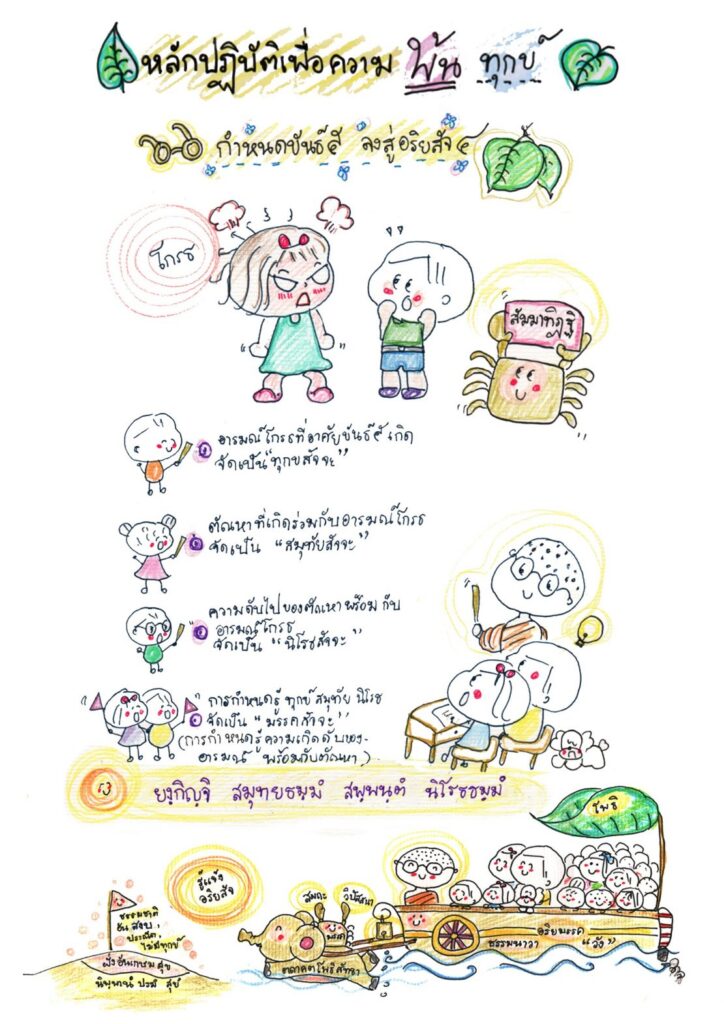 หลักปฏิบัติเพื่อความ พ้น ทุกข์
กำหนดขันธ์ ๕ ลงสู่อริยสัจ ๔
โกรธ
สัมมาทิฏฐิ
อารมณ์โกรธที่อาศัยขันธ์ ๕ เกิด
จัดเป็น "ทุกขสัจจะ"
ตัณหาที่เกิดร่วมกับอารมณ์โกรธ
จัดเป็น "สมุทัยสัจจะ"
ความดับไปของตัณหาพร้อมกับ
อารมณ์โกรธ
จัดเป็น "นิโรธสัจจะ"
การกำหนดรู้ ทุกข์ สมุทัย นิโรธ
จัดเป็น "มรรคสัจจะ"
(การกำหนดรู้ความเกิดดับของ
อารมณ์ พร้อมกับตัณหา)
ยงฺกิญฺจิ สมุทยธมฺมํ สพฺพนฺตํ นิโรธธมฺมํ
โพธิ
รู้แจ้ง
อริยสัจ
สมถะ
วิปัสสนา
มรรค
ธรรมชาติ
อัน สงบ,
ปราณีต,
ไม่มีทุกข์
ฝั่งอันเกษม สุข
นิพพานํ ปรมํ สุขํ
ตถาคตโพธิสัทธา
ธรรมนาวา
อริยมรรค
"วัง"